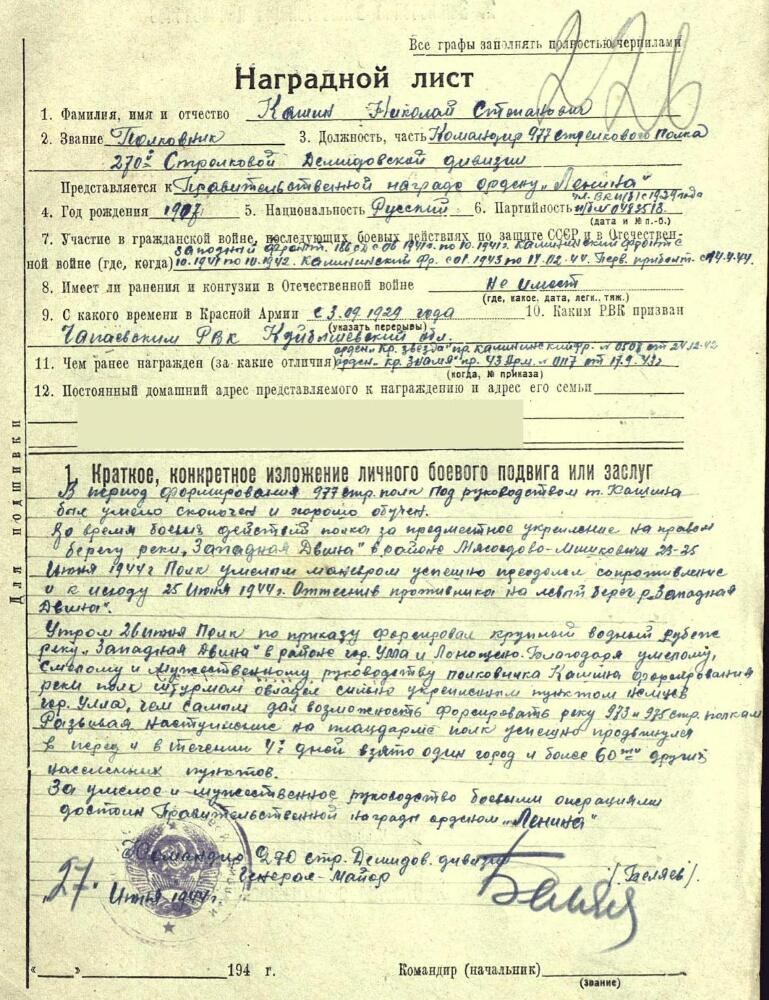 226
Все графы заполнять полностью чернилами
Наградной лист
1. Фамилия, имя и отчество Кашин Николай Степанович
2. Звание Полковник 3. Должность, часть Командир 977 стрелкового Полка
270й Стрелковой Демидовской дивизии
Представляется к Правительственной награде ордену „Ленина"
чл. ВКП(б) с 1929 года
4. Год рождения 1907 5. Национальность Русский 6. Партийность п/б №0483518
(дата и №п.-б.)
7. Участие в гражданской войне, последующих боевых действиях по защите СССР и в Отечествен-
Западный фронт. 186 СД с 06 1941г. по 10.1941г. Калининский фронт с
ной войне (где, когда) 10.1941 по 10.1942. Калининский Фр. с 01.1943 по 14.02.44. Перв. прибалт. с 14.4.44.
8. Имеет ли ранения и контузии в Отечественной войне не имеет
(где, какое, дата, легк., тяж.)
9. С какого времени в Красной Армии с 3.09.1929 года 10. Каким РВК призван
(указать перерывы)
Чапаевским РВК Куйбышевский обл.
орден "Кр. Звезда" пр. Калининский фр. №0508 от 24.12.42
11. Чем ранее награжден (за какие отличия) орден „Кр. Знамя" пр. 43 Арм. №0117 от 17.9.43г
(когда, № приказа)
12. Постоянный домашний адрес представляемого к награждению и адрес его семьи
Для подшивки
1. Краткое, конкретное изложение личного боевого подвига или заслуг
В период формирования 977 стр. полк под руководством т. Кашина
был умело сколочен и хорошо обучен.
Во время боевых действий полка за предмостное укрепление на правом
берегу реки „Западная Двина" в районе 23-25
Июня 1944г Полк умелым маневром успешно преодолел сопротивление
и к исходу 25 Июня 1944г. Оттеснив противника на левый берег р. „Западная
Двина".
Утром 26 июня Полк по приказу форсировал крупный водный рубеж
реку „Западная Двина" в районе гор. Улла и Благодаря умелому,
смелому и мужественному руководству полковника Кашина форсирования
реки полк штурмом овладел сильно укрепленным пунктом немцев
гор. Улла, чем самым дал возможность форсировать реку 973 и 975 стр. полкам
Развивая наступление на плацдарме полк успешно продвинулся
в перед и в течении 4х дней взято один город и более 60ти других
населенных пунктов.
За умелое и мужественное руководство боевыми операциями
достоин Правительственной награды орденом „Ленина"
Командир 270 стр. Демидов. дивизии
Генерал-Майор /Беляев/.
„27" Июня 1944г.
„ “ 194 г. Командир (начальник)
(звание)